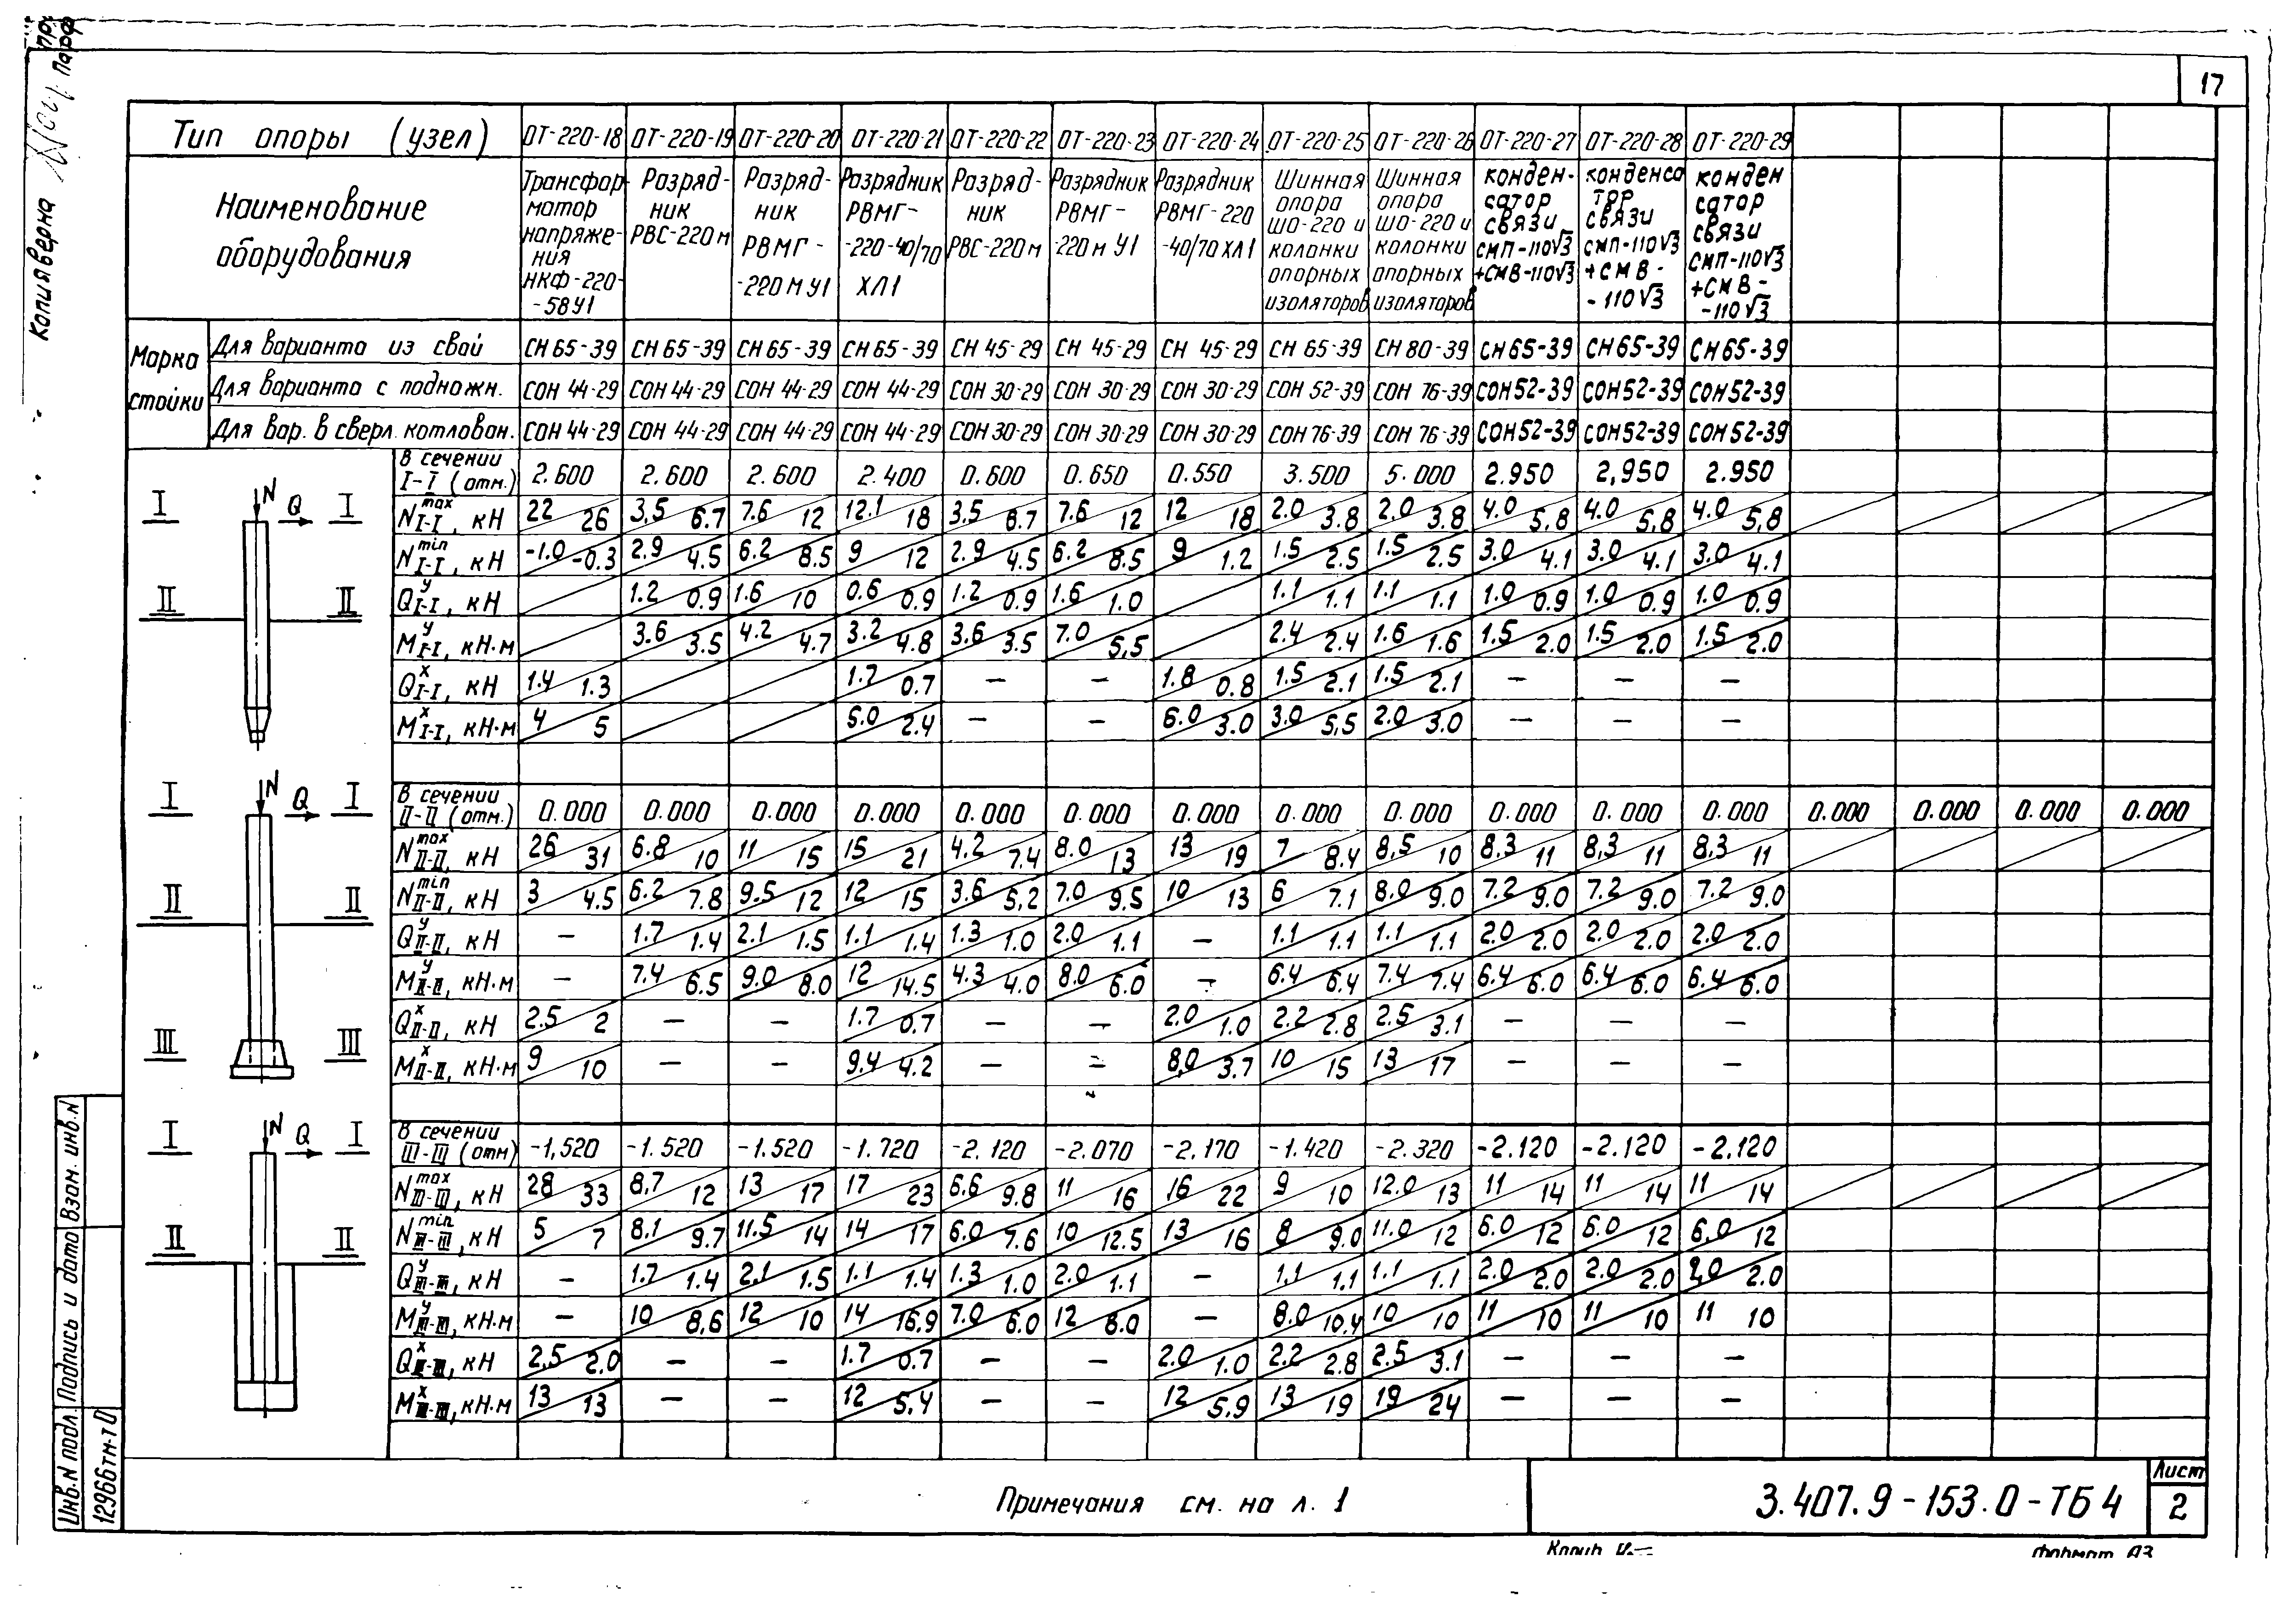 17
Копия верна
Тип опоры (узел) ОТ-220-18 ОТ-220-19 ОТ-220-20 ОТ-220-21 ОТ-220-22 ОТ-220-23 ОТ-220-24 ОТ-220-25 ОТ-220-26 ОТ-220-27 ОТ-220-28 ОТ-220-29
Наименование
оборудования
Трансфор-
матор
напряже-
ния
НКФ-220-
-58У1
Разряд-
ник
РВС-220м
Разряд-
ник
РВМГ-
-220МУ1
Разрядник
РВМГ-
-220-40/70
ХЛ1
Разряд-
ник
РВС-220м
Разрядник
РВМГ-
220м У1
Разрядник
РВМГ-220
-40/70 ХЛ1
Шинная
опора
ШО-220 и
колонки
опорных
изоляторов
Шинная
опора
ШО-220 и
колонки
опорных
изоляторов
конден-
сатор
связи
СМП-110√3
+СМВ-110√3
конденса
тор
связи
СМП-110√3
+СМВ-
-110√3
конден
сатор
связи
СМП-110√3
+СМВ-
-110√3
Марка
стойки
Для варианта из свай СН 65-39 СН 65-39 СН 65-39 СН 65-39 СН 45-29 СН 45-29 СН 45-29 СН 65-39 СН 80-39 СН 65-39 СН 65-39 СН 65-39
Для варианта с подножн. СОН 44-29 СОН 44-29 СОН 44-29 СОН 44-29 СОН 30-29 СОН 30-29 СОН 30-29 СОН 52-39 СОН 76-39 СОН 52-39 СОН 52-39 СОН 52-39
Для вар. в сверл. котлован. СОН 44-29 СОН 44-29 СОН 44-29 СОН 44-29 СОН 30-29 СОН 30-29 СОН 30-29 СОН 76-39 СОН 76-39 СОН 52-39 СОН 52-39 СОН 52-39
В сечении
I-I (отм.) 2.600 2.600 2.600 2.400 0.600 0.650 0.550 3.500 5.000 2.950 2,950 2.950
N max I-I, кН 22/26 3,5/6.7 7.6/12 12.1/18 3,5/6.7 7.6/12 12/18 2.0/3.8 2.0/3.8 4.0/5,8 4.0/5,8 4.0/5,8
N min I-I, кН -1.0/-0.3 2.9/4.5 6.2/8.5 9/12 2.9/4.5 6.2/8.5 9/1.2 1.5/2.5 1.5/2.5 3.0/4.1 3.0/4.1 3.0/4.1
Q у I-I, кН 1.2/0.9 1.6/10 0.6/0.9 1.2/0.9 1.6/1.0 1.1/1.1 1.1/1.1 1.0/0.9 1.0/0.9 1.0/0.9
М у I-I, кН·м 3.6/3.5 4.2/4.7 3.2/4.8 3.6/3.5 7.0/5,5 2.4/2.4 1.6/1.6 1.5/2.0 1.5/2.0 1.5/2.0
Q х I-I, кН 1.4/1.3 1.7/0.7 — — 1.8/0.8 1.5/2.1 1.5/2.1 — — —
М х I-I, кН·м 4/5 5.0/2.4 — — 6.0/3.0 3.0/5,5 2.0/3.0 — — —
В сечении
II-II (отм.) 0.000 0.000 0.000 0.000 0.000 0.000 0.000 0.000 0.000 0.000 0.000 0.000 0.000 0.000 0.000 0.000
N max II-II, кН 26/31 6.8/10 11/15 15/21 4.2/7.4 8.0/13 13/19 7/8.4 8,5/10 8.3/11 8,3/11 8,3/11
N min II-II, кН 3/4.5 6.2/7.8 9.5/12 12/15 3.6/5,2 7.0/9.5 10/13 6/7.1 8.0/9.0 7.2/9.0 7.2/9.0 7.2/9.0
Q у II-II, кН — 1.7/1.4 2.1/1.5 1.1/1.4 1.3/1.0 2.0/1.1 — 1.1/1.1 1.1/1.1 2.0/2.0 2.0/2.0 2.0/2.0
М у II-II, кН·м — 7.4/6.5 9.0/8.0 12/14.5 4.3/4.0 8.0/6.0 — 6.4/6.4 7.4/7.4 6.4/6.0 6.4/6.0 6.4/6.0
Q х II-II, кН 2.5/2 — — 1.7/0.7 — — 2.0/1.0 2.2/2.8 2.5/3.1 — — —
М х II-II, кН·м 9/10 — — 9.4/4.2 — — 8,0/3.7 10/15 13/17 — — —
В сечении
III-III (отм) -1,520 -1.520 -1.520 -1.720 -2.120 -2.070 -2.170 -1.420 -2.320 -2.120 -2.120 -2.120
N max III-III, кН 28/33 8,7/12 13/17 17/23 6.6/9.8 11/16 16/22 9/10 12.0/13 11/14 11/14 11/14
N min III-III, кН 5/7 8.1/9.7 11.5/14 14/17 6.0/7.6 10/12.5 13/16 8/9.0 11.0/12 6.0/12 6.0/12 6.0/12
Q у III-III, кН — 1.7/1.4 2.1/1.5 1.1/1.4 1.3/1.0 2.0/1.1 — 1,1/1.1 1.1/1.1 2.0/2.0 2.0/2.0 2,0/2.0
М у III-III, кН·м — 10/8,6 12/10 14/16.9 7.0/6.0 12/8.0 — 8.0/10,4 10/10 11/10 11/10 11 10
Q х III-III, кН 2,5/2.0 — — 1.7/0.7 — — 2.0/1.0 2.2/2.8 2.5/3.1 — — —
М х III-III, кН·м 13/13 — — 12/5,4 — — 12/5.9 13/19 19/24 — — —
I N Q I
II II
I N Q I
II II
III III
I N Q I
II II
Инв. N подл. Подпись и дата Взам. инв. N
12966тм-т0
Примечания см. на л. 1
3.407.9-153.0-ТБ4
Лист
2
Копир.
формат А3